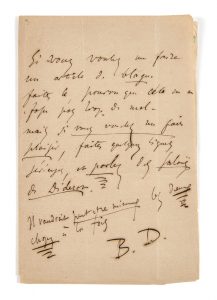 Si vous voulez me faire
un article de blague,
faites le pourvu que cela ne me
fasse pas trop de mal.
mais si vous voulez me faire
plaisir, faites quelques lignes
sérieuses, et parlez des Salons
de Diderot.
Il vaudrait peut être mieux les deux
choses à la fois
B. D.